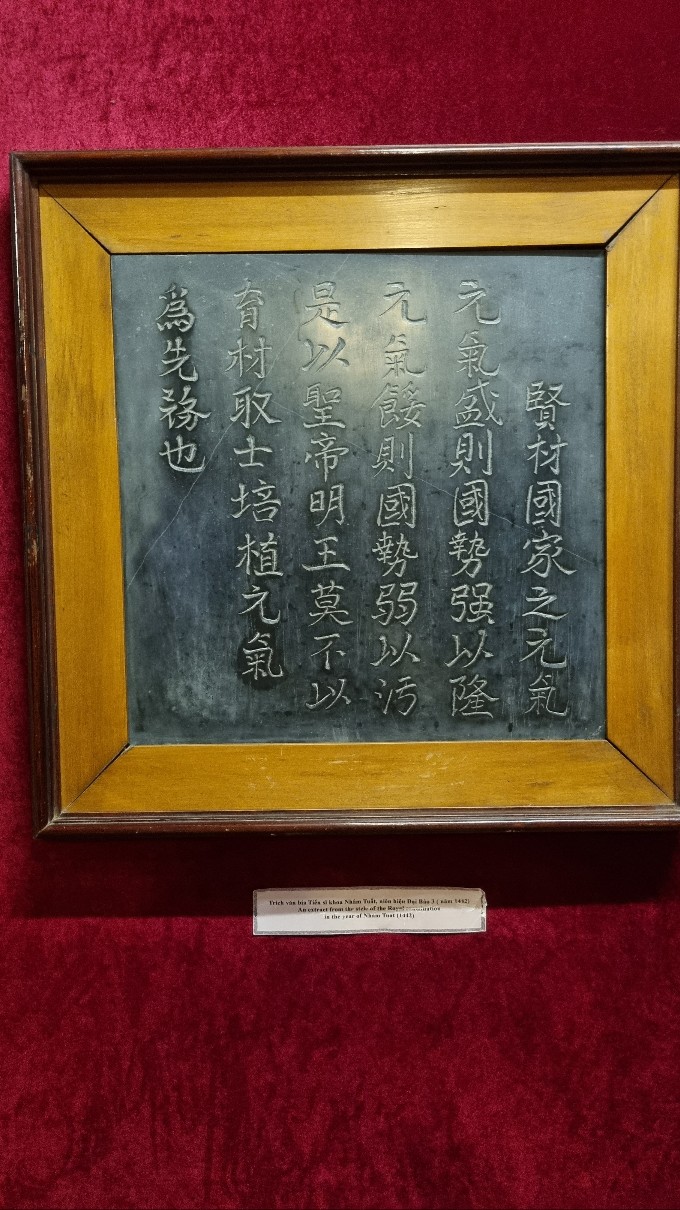 賢材國家之元氣
元氣盛則國勢强以隆
元氣餒則國勢弱以污
是以聖帝明王莫不以
育材取士培植元氣
為先務也
Trích văn bia Tiến sĩ khoa Nhâm Tuất, niên hiệu Đại Bảo 3 ( năm 1442)
An extract from the stele of the Royal
in the year of Nham Tuat (1442)